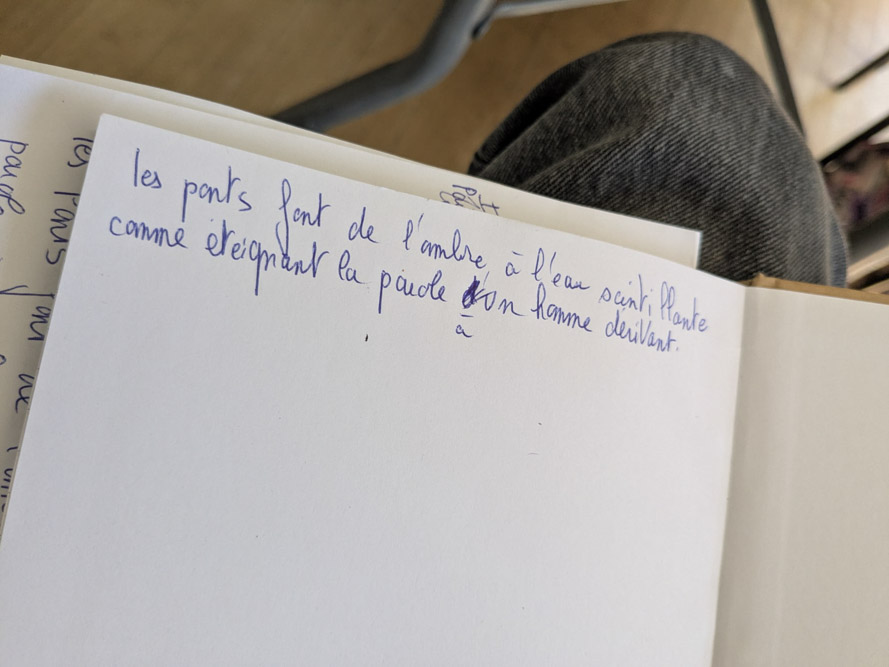 les ponts font de l'ombre, à l'eau scintillante
comme éteignant la parole d'un homme dérivant.
à